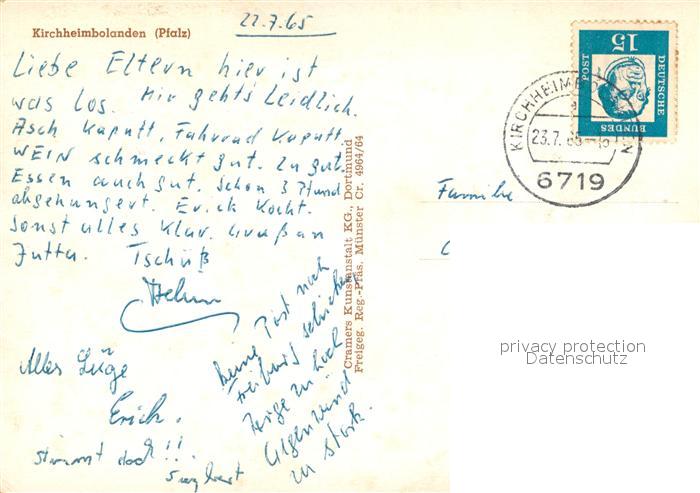 Kirchheimbolanden (Pfalz)
22.7.65
Liebe Eltern hier ist
was los. Mir gehts Leidlich.
Asch kaputt, Fahrrad kaputt
WEIN schmeckt gut. Zu gut.
Essen auch gut. Schon 3 Pfund
abgehungert. Erick kocht.
Sonst alles klar. Gruß an
Jutta. Tschüß
Helm
Alles Lüge
Erich.
stimmt doch!!
Keine Post nach
Freiburg schicken
Berge zu hoch
Gegenwind
zu stark.
Cramers Kunstanstalt KG., Dortmund
Freigeg. Reg.-Präs. Münster Cr. 4964/64
15
DEUTSCHE
BUNDES
POST
KIRCHHEIMB
23.7.65-15
6719
Familie
privacy protection
Datenschutz